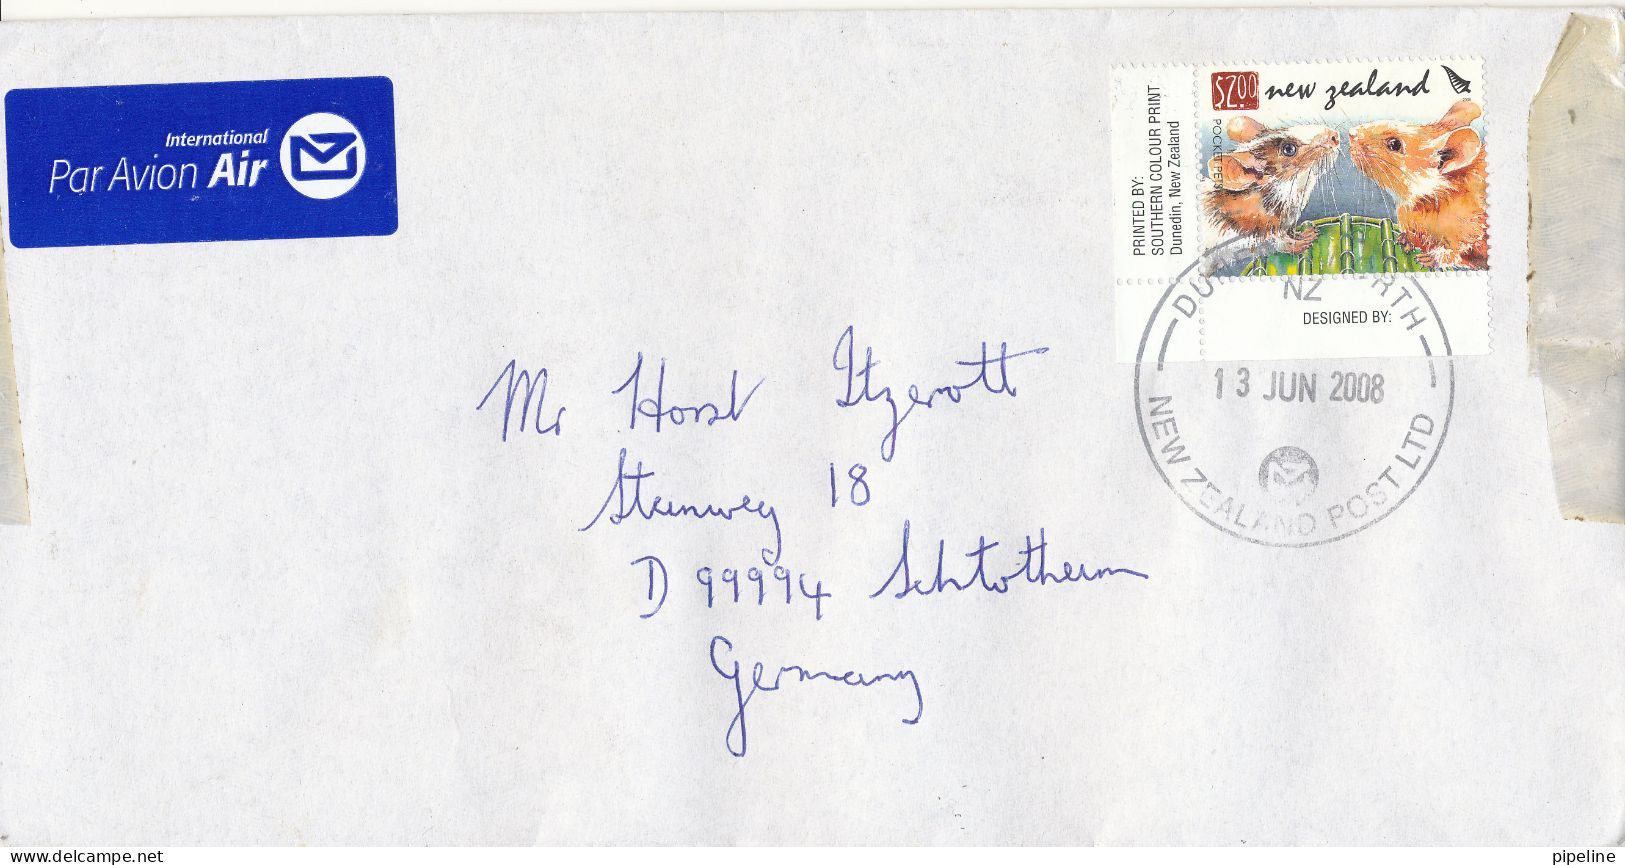 International
Par Avion Air
PRINTED BY:
SOUTHERN COLOUR PRINT
Dunedin, New Zealand
$2.00 new zealand
POCKET PETS
2008
DESIGNED BY:
NZ
13 JUN 2008
NEW ZEALAND POST LTD
Mr Horst Itzerott
Steinweg 18
D 99994 Schlotheim
Germany
www.delcampe.net
pipeline